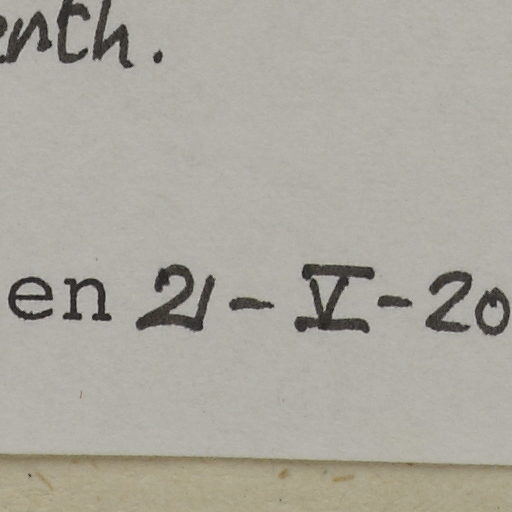 enth.
en 21-V-20